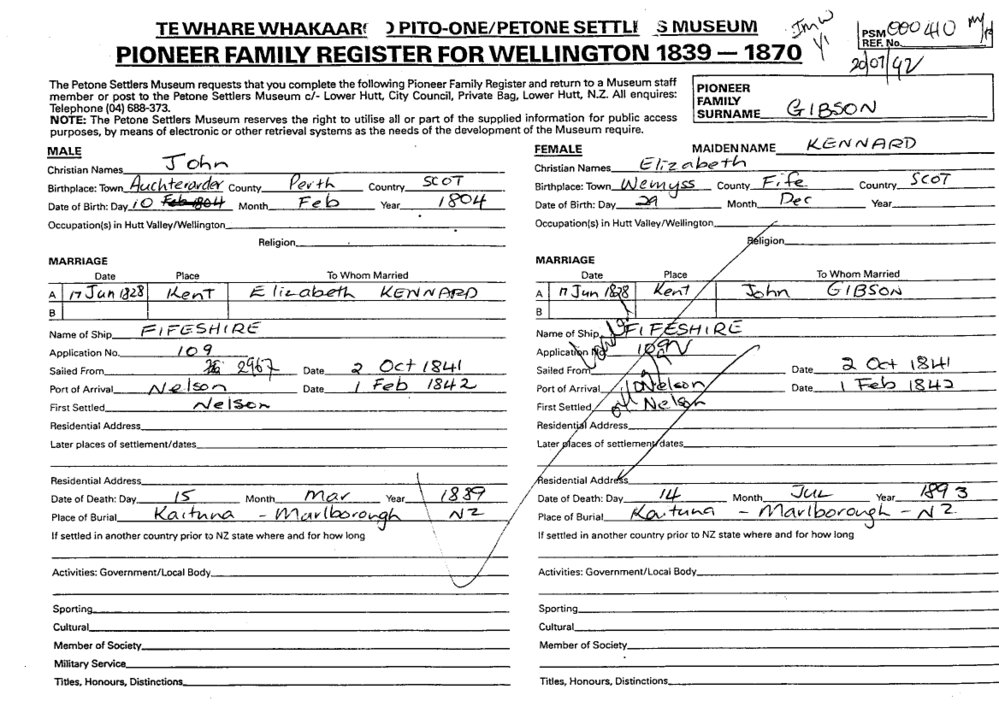 TE WHARE WHAKAAR PITO-ONE/PETONE SETTL S MUSEUM
PIONEER FAMILY REGISTER FOR WELLINGTON 1839 — 1870
PSM 000410
REF. No.
20/07/92
The Petone Settlers Museum requests that you complete the following Pioneer Family Register and return to a Museum staff
member or post to the Petone Settlers Museum c/- Lower Hutt, City Council, Private Bag, Lower Hutt, N.Z. All enquires:
Telephone (04) 688-373.
NOTE: The Petone Settlers Museum reserves the right to utilise all or part of the supplied information for public access
purposes, by means of electronic or other retrieval systems as the needs of the development of the Museum require.
PIONEER
FAMILY
SURNAME GIBSON
MALE
Christian Names John
Birthplace: Town Auchterarder County Perth Country SCOT
Date of Birth: Day 10 Feb 1804 Month Feb Year 1804
Occupation(s) in Hutt Valley/Wellington
Religion
MARRIAGE
Date Place To Whom Married
A 17 Jun 1828 Kent Elizabeth KENNARD
B
Name of Ship FIFESHIRE
Application No. 109
Sailed From 2967 Date 2 Oct 1841
Port of Arrival Nelson Date 1 Feb 1842
First Settled Nelson
Residential Address
Later places of settlement/dates
Residential Address
Date of Death: Day 15 Month Mar Year 1889
Place of Burial Kaituna - Marlborough NZ
If settled in another country prior to NZ state where and for how long
Activities: Government/Local Body
Sporting
Cultural
Member of Society
Military Service
Titles, Honours, Distinctions
FEMALE MAIDEN NAME KENNARD
Christian Names Elizabeth
Birthplace: Town Wemyss County Fife Country SCOT
Date of Birth: Day 29 Month Dec Year
Occupation(s) in Hutt Valley/Wellington
Religion
MARRIAGE
Date Place To Whom Married
A 17 Jun 1828 Kent John GIBSON
B
Name of Ship FIFESHIRE
Application No. 109
Sailed From Date 2 Oct 1841
Port of Arrival Nelson Date 1 Feb 1842
First Settled Nelson
Residential Address
Later places of settlement/dates
Residential Address
Date of Death: Day 14 Month JUL Year 1893
Place of Burial Kaituna - Marlborough - NZ
If settled in another country prior to NZ state where and for how long
Activities: Government/Local Body
Sporting
Cultural
Member of Society
Titles, Honours, Distinctions